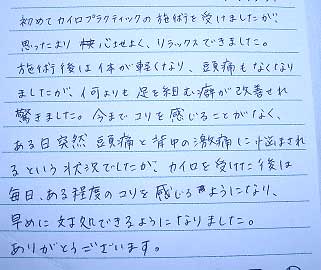 初めてカイロプラクティックの施術を受けましたが、
思ったより快心まもよく、リラックスできました。
施術後は体が軽くなり、頭痛もなくなり
ましたが、何よりも足を組む癖が改善され
驚きました。今までコリを感じることがなく、
ある日突然頭痛と背中の激痛に悩まされ
るという状況でしたが、カイロを受けた後は
毎日、ある程度のコリを感じるようになり、
早めに対処できるようになりました。
ありがとうございます。